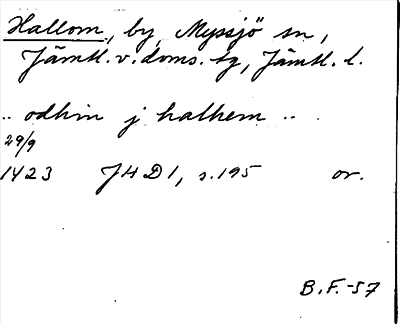 Hallom, by, Myssjö sn,
Jämtl. v. doms. tg, Jämtl. l.
.. odhin j halhem ..
29/9
1423 JHD 1, s. 195 or.
B.F.-57